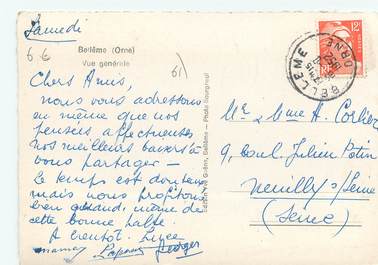 Samedi
66
Bellême (Orne)
Vue générale
61
Chers Amis,
nous vous adressons
en même que nos
pensées affectueuses
nos meilleurs baisers à
vous partager —
Le temps est douteux
mais nous profitons
bien quand même de
cette bonne halte.
A bientôt.
maman Georges
BELLEME
ORNE
1952
12F
Mr & Mme A. Corbier
9, boul. Julien Potin
Neuilly s/Seine
(Seine)